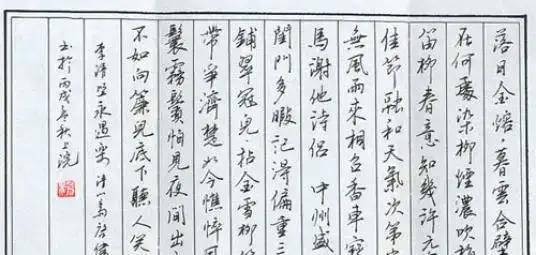 落日金熔，暮雲合璧
在何處染柳煙濃吹梅
笛柳春意知幾許元
佳節融和天氣次第
無風雨來相召香車寶
馬謝他詩侶 中州盛
閨門多暇記得偏重三
鋪翠冠兒拈金雪柳
帶爭濟楚如今憔悴風
鬟霧鬢怕見夜間出
不如向簾兒底下聽人笑
李清照永遇樂
書於丙戌年秋上浣